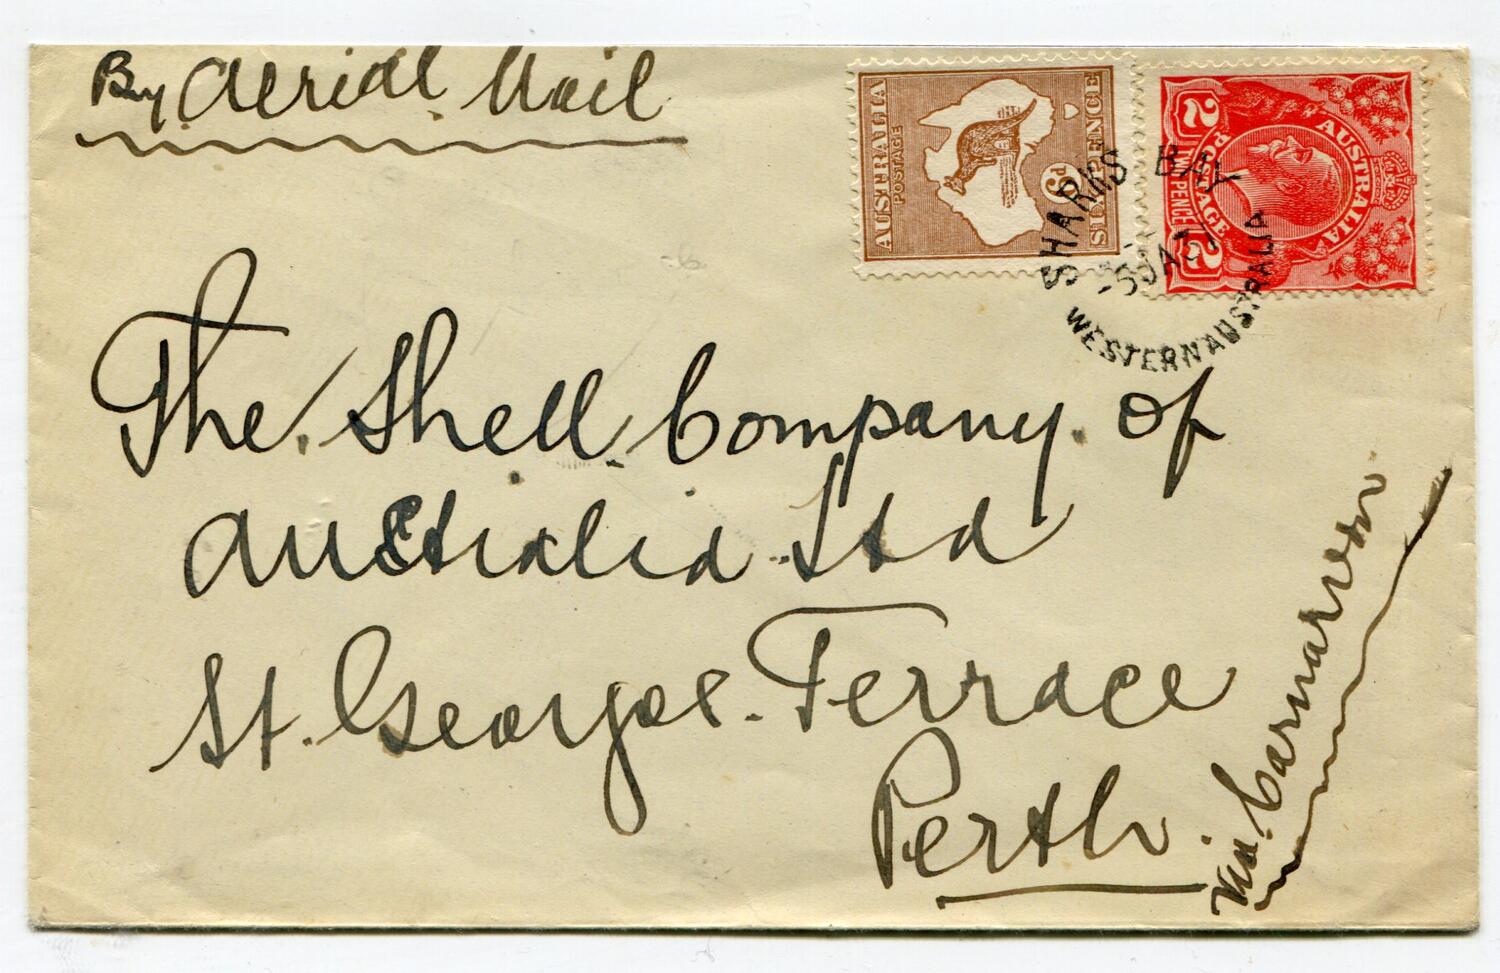 By Aerial Mail
AUSTRALIA
POSTAGE
6d
SIXPENCE
2
TWOPENCE
2
POSTAGE
AUSTRALIA
SHARKS BAY
WESTERN AUSTRALIA
The Shell Company of
Australia Ltd
St. Georges. Terrace
Perth
via. Carnarvon